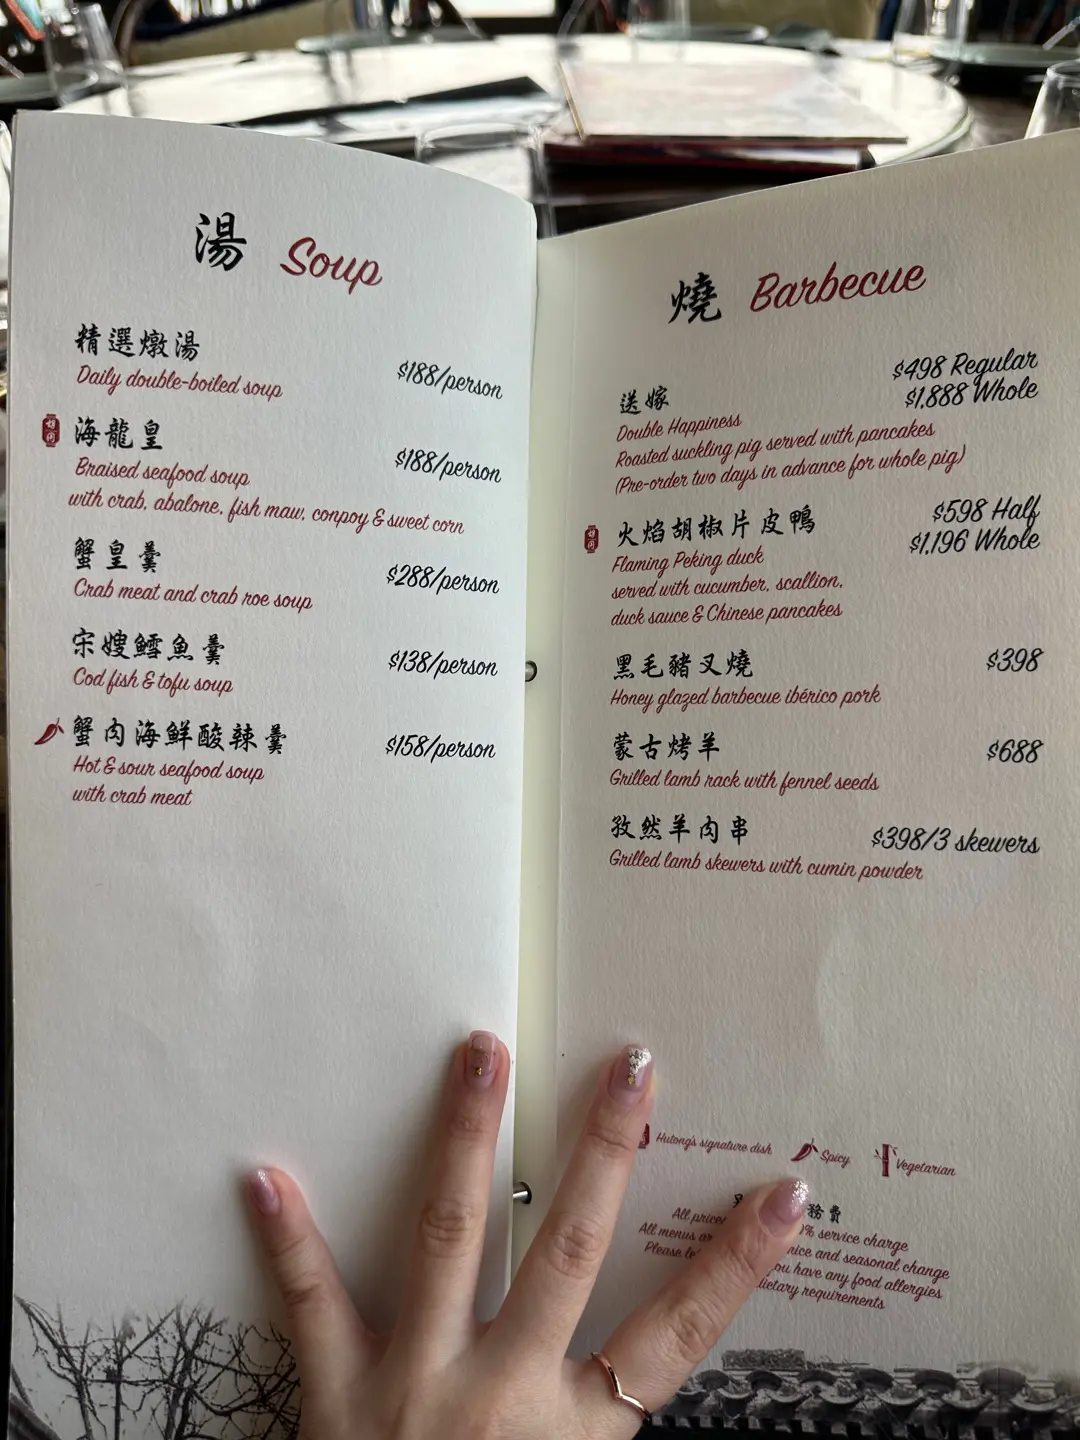 湯 Soup
精選燉湯
Daily double-boiled soup $188/person
海龍皇
Braised seafood soup $188/person
with crab, abalone, fish maw, conpoy & sweet corn
蟹皇羹
Crab meat and crab roe soup $288/person
宋嫂鱈魚羹
Cod fish & tofu soup $138/person
蟹肉海鮮酸辣羹 $158/person
Hot & sour seafood soup
with crab meat
燒 Barbecue
$498 Regular
送嫁 $1,888 Whole
Double Happiness
Roasted suckling pig served with pancakes
(Pre-order two days in advance for whole pig)
火焰胡椒片皮鴨 $598 Half
Flaming Peking duck $1,196 Whole
served with cucumber, scallion,
duck sauce & Chinese pancakes
黑毛豬叉燒 $398
Honey glazed barbecue ibérico pork
蒙古烤羊 $688
Grilled lamb rack with fennel seeds
孜然羊肉串 $398/3 skewers
Grilled lamb skewers with cumin powder
Hutong's signature dish Spicy Vegetarian
務費
All service charge
All menus and seasonal change
Please you have any food allergies
dietary requirements